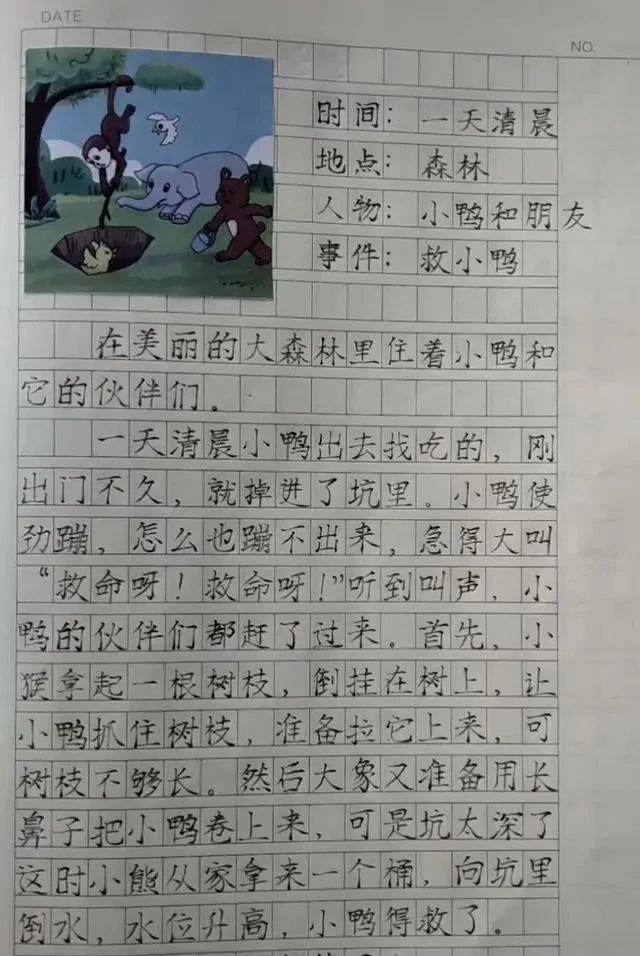 DATE
NO.
时间：一天清晨
地点：森林
人物：小鸭和朋友
事件：救小鸭
在美丽的大森林里住着小鸭和
它的伙伴们。
一天清晨小鸭出去找吃的，刚
出门不久，就掉进了坑里。小鸭使
劲蹦，怎么也蹦不出来，急得大叫
“救命呀！救命呀！”听到叫声，小
鸭的伙伴们都赶了过来。首先，小
猴拿起一根树枝，倒挂在树上，让
小鸭抓住树枝，准备拉它上来，可
树枝不够长。然后大象又准备用长
鼻子把小鸭卷上来，可是坑太深了
这时小熊从家拿来一个桶，向坑里
倒水，水位升高，小鸭得救了。